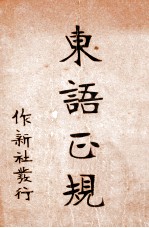 東語正規
作新社發行